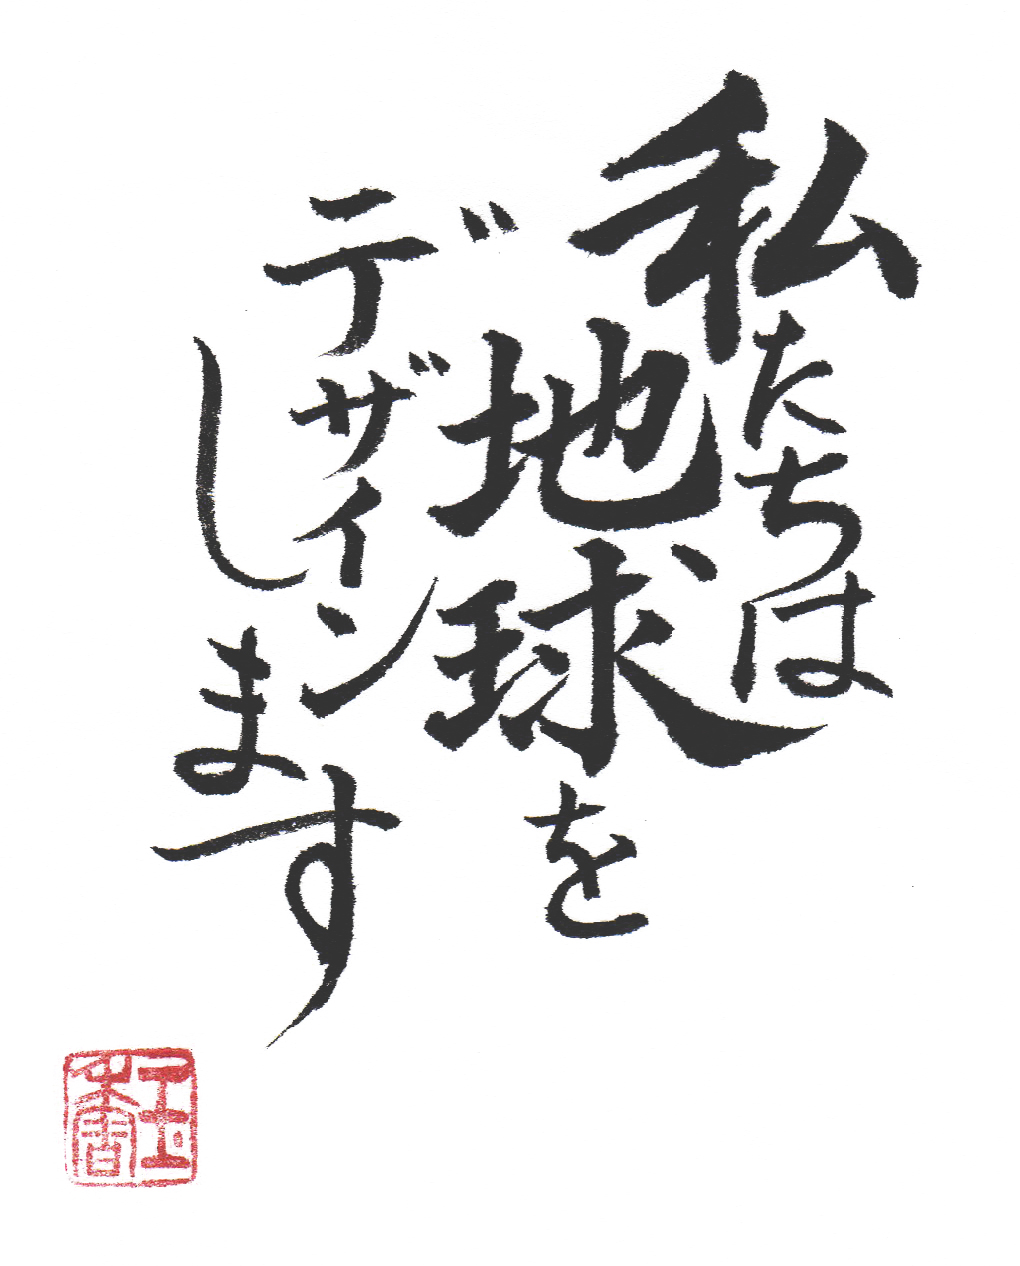 私たちは
地球を
デザイン
します